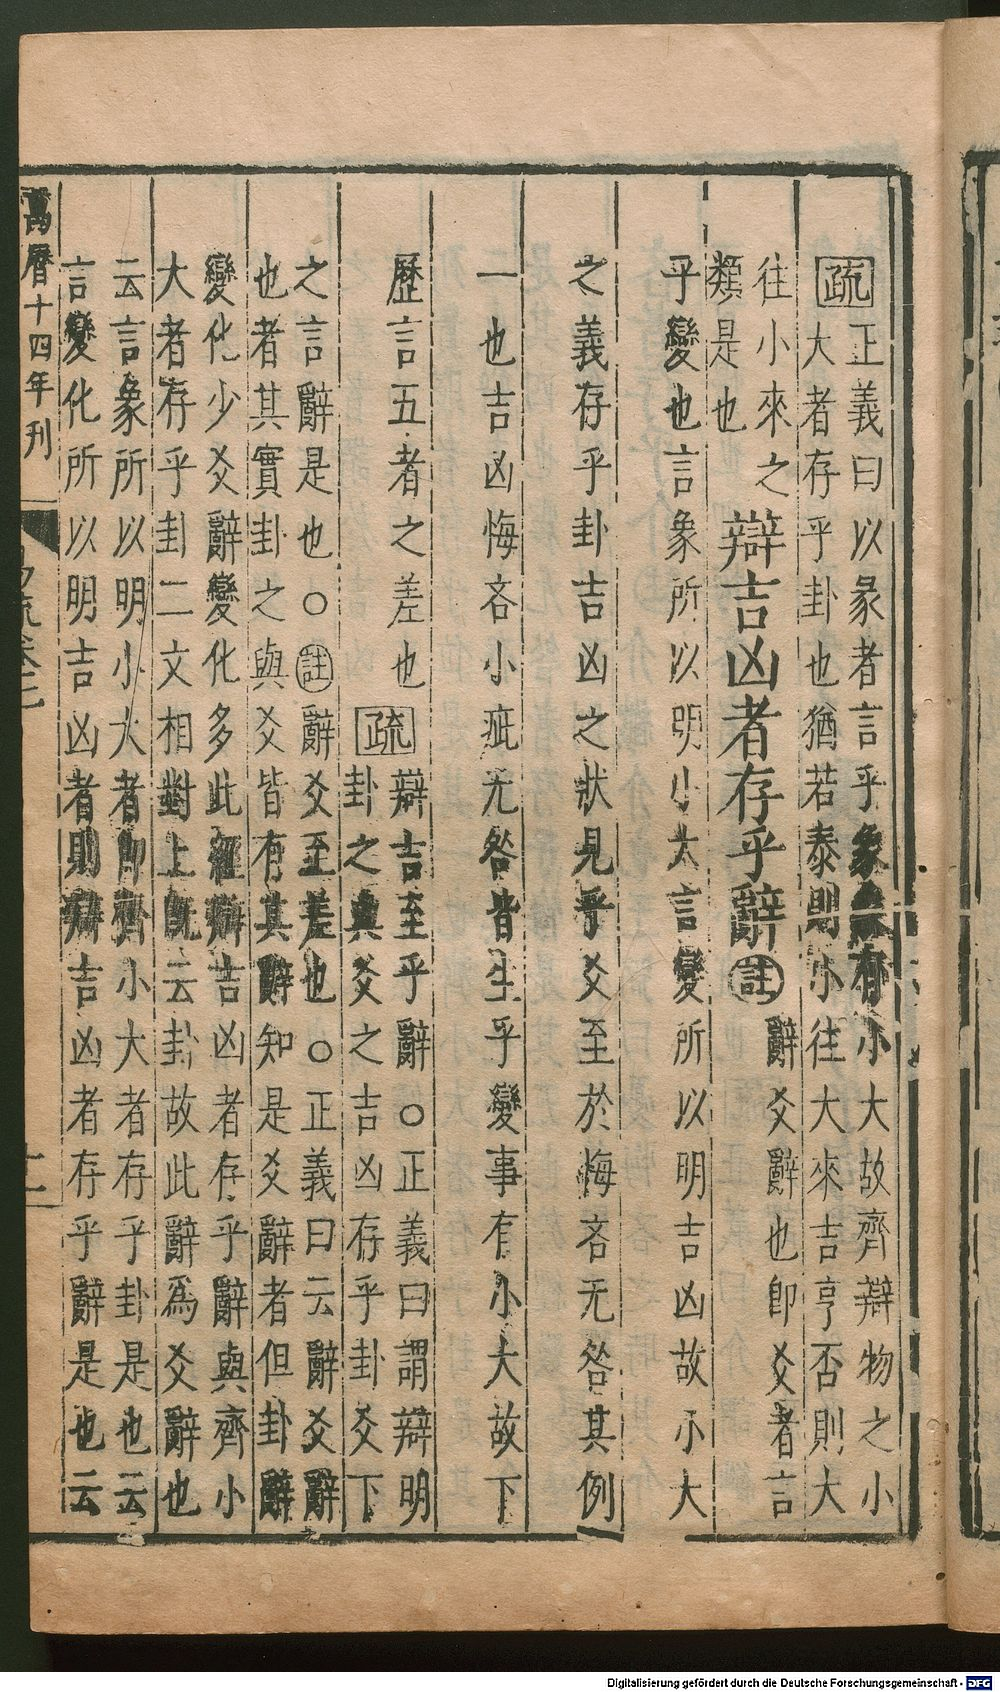 疏
正義曰以彖者言乎象有小大故齊辯物之小
大者存乎卦也猶若泰則小往大來吉亨否則大
往小來之
類是也
辯吉凶者存乎辭註辭爻辭也即爻者言
乎變也言象所以明小大言變所以明吉凶故小大
之義存乎卦吉凶之狀見乎爻至於悔吝无咎其例
一也吉凶悔吝小疵无咎皆生乎變事有小大故下
歷言五者之差也疏
辯吉至乎辭○正義曰謂辯明
卦之與爻之吉凶存乎卦爻下
之言辭是也○註辭爻至差也○正義曰云辭爻辭
也者其實卦之與爻皆有其辭知是爻辭者但卦辭
變化少爻辭變化多此經辯吉凶者存乎辭與齊小
大者存乎卦二文相對上旣云卦故此辭為爻辭也
云言象所以明小大者即齊小大者存乎卦是也云
言變化所以明吉凶者則辯吉凶者存乎辭是也云
萬曆十四年刊
Digitalisierung gefördert durch die Deutsche Forschungsgemeinschaft - DFG